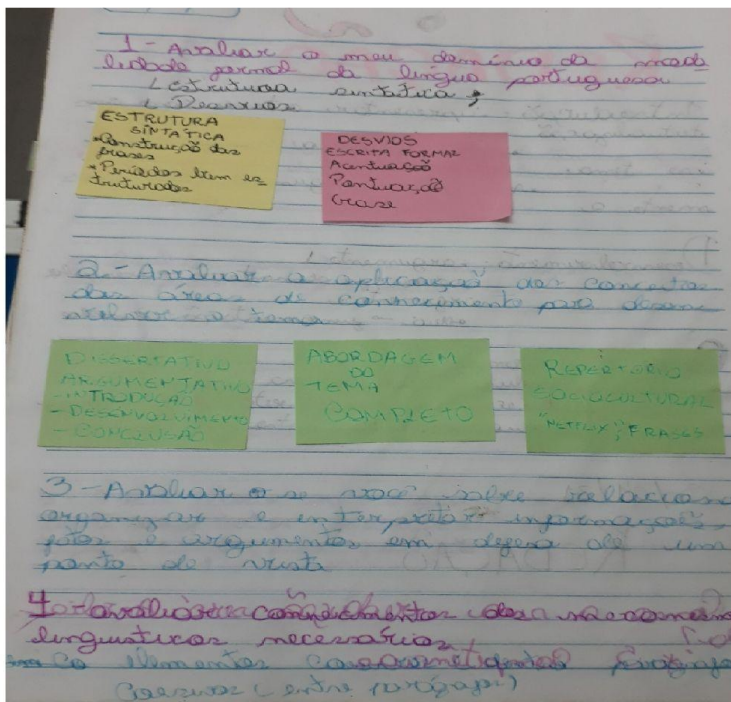 1 - Avaliar o meu domínio da moda
lidade formal da língua portuguesa
↳ estrutura sintática;
↳ Desvios
ESTRUTURA
SINTÁTICA
* Construção das
frases
* Períodos bem es
truturados
DESVIOS
ESCRITA FORMAL
Acentuação
Pontuação
Crase
2 - Avaliar a aplicação dos conceitos
das áreas de conhecimento para desen
volver o tema
DISSERTATIVO
ARGUMENTATIVO
- INTRODUÇÃO
- DESENVOLVIMENTO
- CONCLUSÃO
ABORDAGEM
DO
TEMA
COMPLETO
REPERTÓRIO
SOCIOCULTURAL
"NETFLIX", FRASES
3 - Avaliar se você sabe relaciona
organizar e interpretar informações,
fatos e argumentos em defesa de um
ponto de vista
4 -
linguisticos necessários
elementos
Coesivos (entre parágrafo)